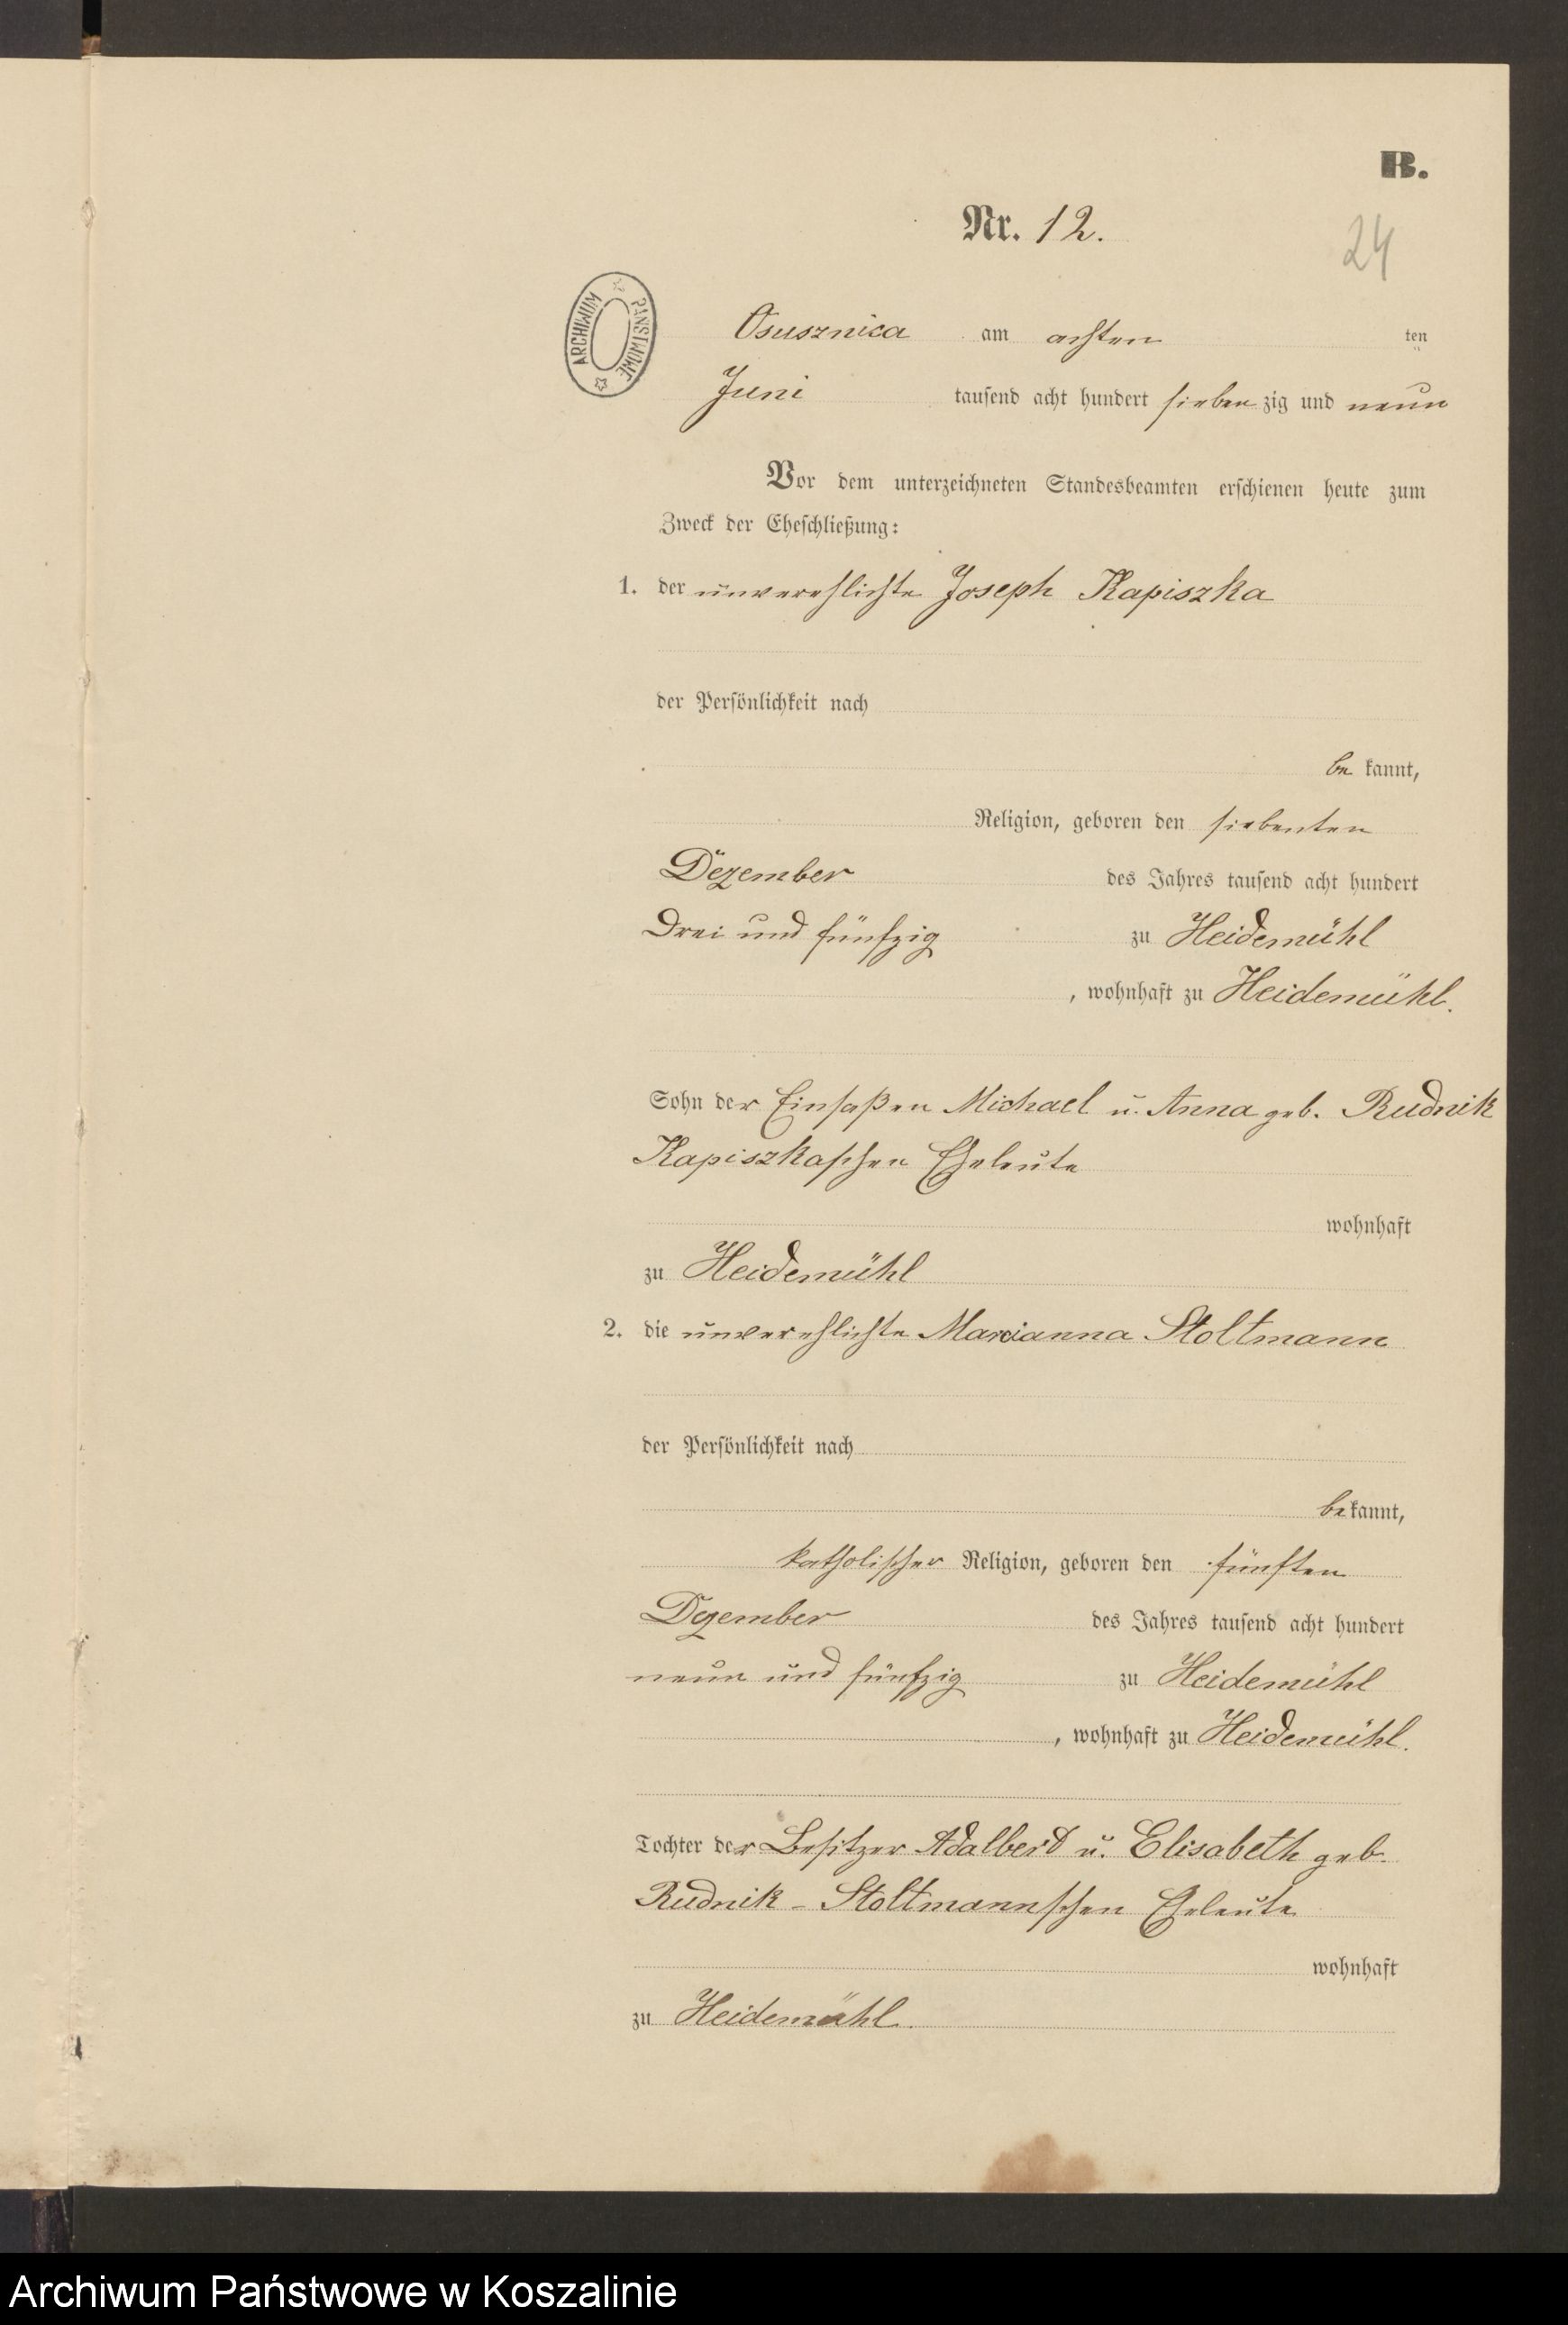 B.
Nr. 12.
24
ARCHIWUM PAŃSTWOWE
Osusznica am achten ten
Juni tausend acht hundert siebenzig und neun
Vor dem unterzeichneten Standesbeamten erschienen heute zum
Zweck der Eheschließung:
1. der unverehlichte Joseph Kapiszka
der Persönlichkeit nach
be kannt,
Religion, geboren den siebenten
Dezember des Jahres tausend acht hundert
Drei und fünfzig zu Heidemühl
, wohnhaft zu Heidemühl.
Sohn der Einsaßen Michael u. Anna geb. Rudnik
Kapiszkaschen Eheleute
wohnhaft
zu Heidemühl
2. die unverehlichte Marianna Stoltmann
der Persönlichkeit nach
bekannt,
katholischer Religion, geboren den fünften
Dezember des Jahres tausend acht hundert
neun und fünfzig zu Heidemühl
, wohnhaft zu Heidemühl.
Tochter der Besitzer Adalbert u. Elisabeth geb.
Rudnik - Stoltmannschen Eheleute
wohnhaft
zu Heidemühl.
Archiwum Państwowe w Koszalinie